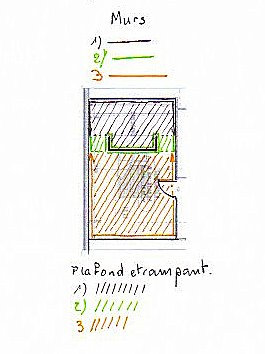 Murs
1)
2)
3
Plafond et rampant.
1)
2)
3